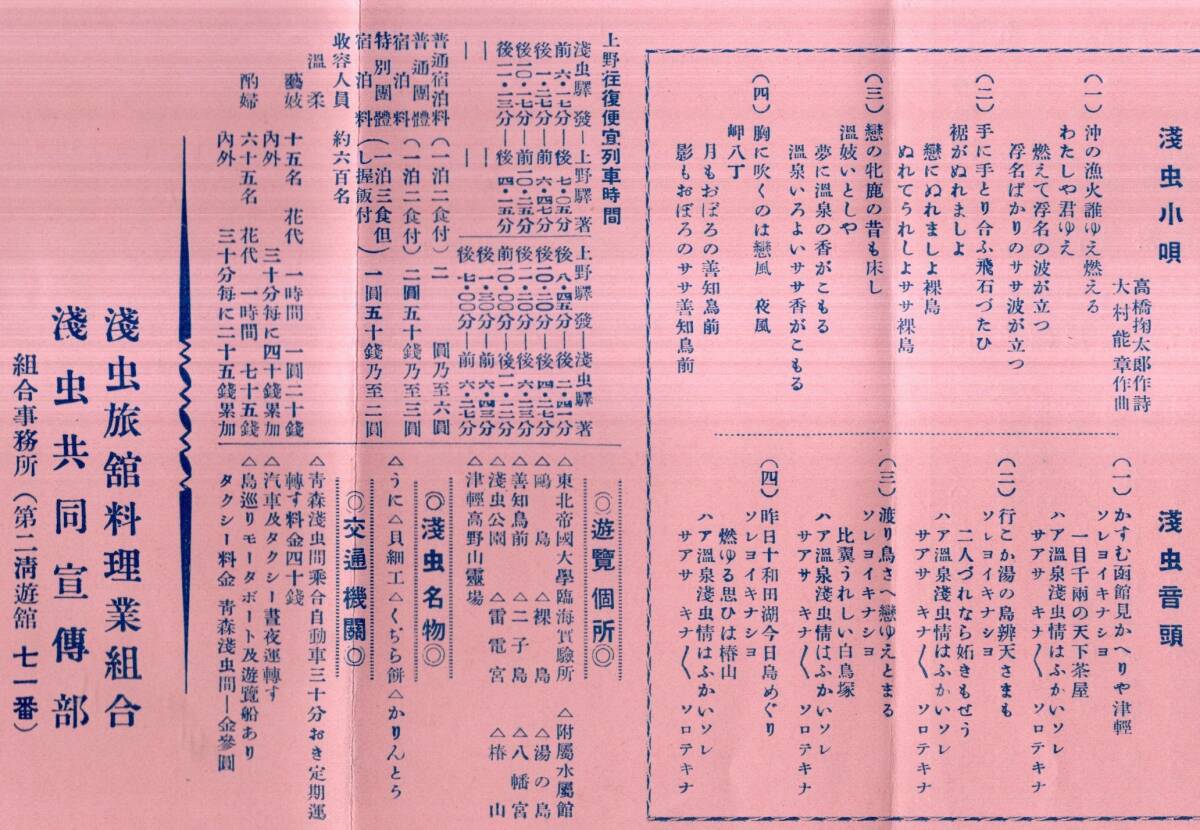 淺虫小唄
高橋掬太郎作詩
大村能章作曲
(一) 沖の漁火誰ゆえ燃える
わたしや君ゆえ
燃えて浮名の波が立つ
浮名ばかりのササ波が立つ
(二) 手に手とり合ふ飛石づたひ
裾がぬれましよ
戀にぬれましよ裸島
ぬれてうれしよササ裸島
(三) 戀の牝鹿の昔も床し
溫妓いとしや
夢に溫泉の香がこもる
溫泉いろよいササ香がこもる
(四) 胸に吹くのは戀風 夜風
岬八丁
月もおぼろの善知鳥前
影もおぼろのササ善知鳥前
淺虫音頭
(一) かすむ函館見かへりや津輕
ソレヨイキナシヨ
一目千兩の天下茶屋
ハア溫泉淺虫情はふかいソレ
サアサ キナ〱 ソロテキナ
(二) 行こか湯の島辨天さまも
ソレヨイキナシヨ
二人づれなら妬きもせう
ハア溫泉淺虫情はふかいソレ
サアサ キナ〱 ソロテキナ
(三) 渡り鳥さへ戀ゆえとまる
ソレヨイキナシヨ
比翼うれしい白鳥塚
ハア溫泉淺虫情はふかいソレ
サアサ キナ〱 ソロテキナ
(四) 昨日十和田湖今日島めぐり
ソレヨイキナシヨ
燃ゆる思ひは椿山
ハア溫泉淺虫情はふかいソレ
サアサ キナ〱 ソロテキナ
上野往復便宜列車時間
淺虫驛 發―上野驛 著 上野驛 發―淺虫驛 著
前 六・一七分―後 七・〇五分 後 八・四五分―後 二・四一分
後 一・二七分―前 六・四七分 後一〇・二〇分―後 四・二七分
後一〇・一七分―前一〇・二五分 後一一・二〇分―後 六・二三分
後一一・一三分―後 四・一五分 前一〇・〇〇分―後一一・一二分
― 後 一・三〇分―前 六・四三分
― 後 七・〇〇分―前 六・二七分
普通宿泊料 (一泊二食付) 二 圓乃至六圓
普通團體宿泊料 (一泊二食付) 二圓五十錢乃至三圓
特別團體宿泊料 (一泊三食但し握飯付) 一圓五十錢乃至二圓
收容人員 約六百名
溫柔
藝妓 十五名內外 花代 一時間 一圓二十錢 三十分每に四十錢累加
酌婦 六十五名內外 花代 一時間 七十五錢 三十分每に二十五錢累加
◎遊覽個所◎
△東北帝國大學臨海實驗所 △附屬水屬館
△鷗島 △裸島 △湯の島
△善知鳥前 △二子島 △八幡宮
△淺虫公園 △雷電宮 △椿山
△津輕高野山靈場
◎淺虫名物◎
△うに△貝細工△くぢら餅△かりんとう
◎交通機關◎
△靑森淺虫間乘合自動車三十分おき定期運轉す料金四十錢
△汽車及タクシー晝夜運轉す
△島巡りモータボート及遊覽船あり
タクシー料金 靑森淺虫間―金參圓
淺虫旅舘料理業組合
淺虫共同宣傳部
組合事務所 (第二淸遊舘 七一番)